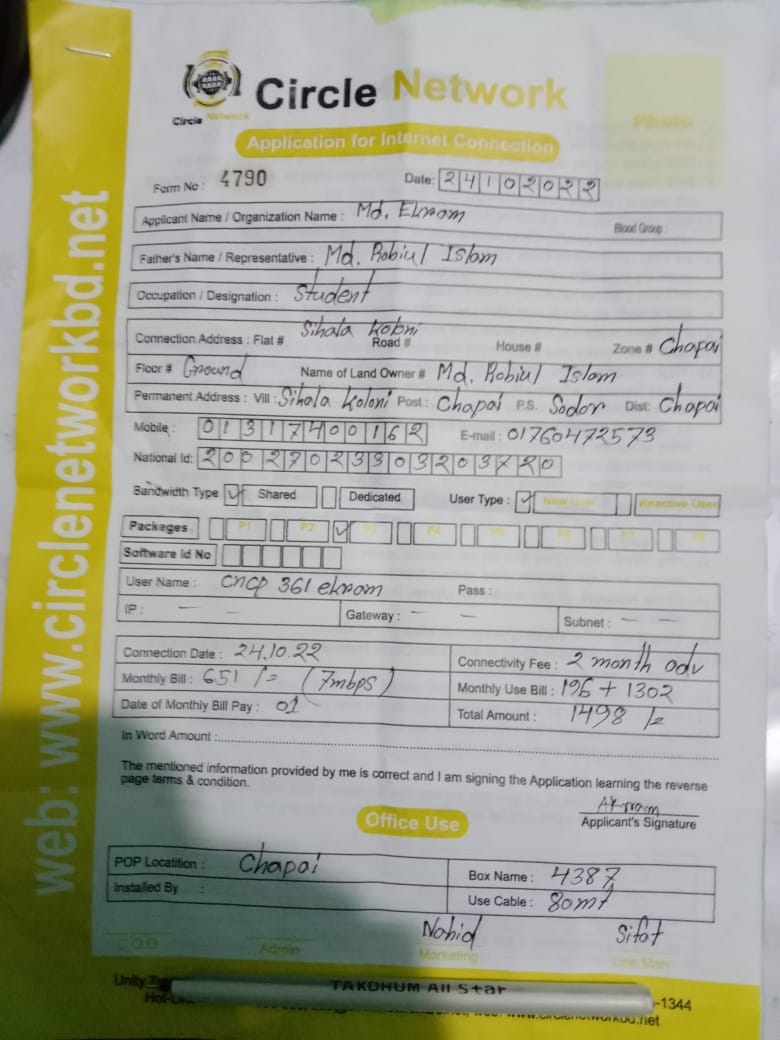 Circle Network
Circle Network
Application for Internet Connection
Photo
Form No : 4790
Date: 24102022
Applicant Name / Organization Name : Md. Ekrom
Blood Group :
Father's Name / Representative : Md. Robiul Islam
Occupation / Designation : Student
Connection Address : Flat # Sihala Koloni Road # House # Zone # Chapai
Floor # Ground Name of Land Owner # Md. Robiul Islam
Permanent Address : Vill : Sihala Koloni Post : Chapai P.S. Sodor Dist: Chapai
Mobile : 01317400162 E-mail : 01760472573
National Id:
Bandwidth Type ✓ Shared Dedicated User Type : ✓ New User Reactive User
Packages. P1 P2 ✓ P3 P4 P5 P6 P7 P8
Software Id No
User Name : cncp 361 ekrom Pass :
IP : — — Gateway : — — Subnet : — —
Connection Date : 24.10.22
Connectivity Fee : 2 month adv
Monthly Bill : 651 /= (7mbps)
Monthly Use Bill : 196 + 1302
Date of Monthly Bill Pay : 01
Total Amount : 1498 /=
In Word Amount :
The mentioned information provided by me is correct and I am signing the Application learning the reverse
page terms & condition.
Akram
Applicant's Signature
Office Use
POP Locatition : Chapai
Box Name : 4387
Installed By :
Use Cable : 80mt
Nahid Sifat
C.O.O Admin Marketing Line Man
Unity
TAKDHUM All Star
-1344
web: www.circlenetworkbd.net